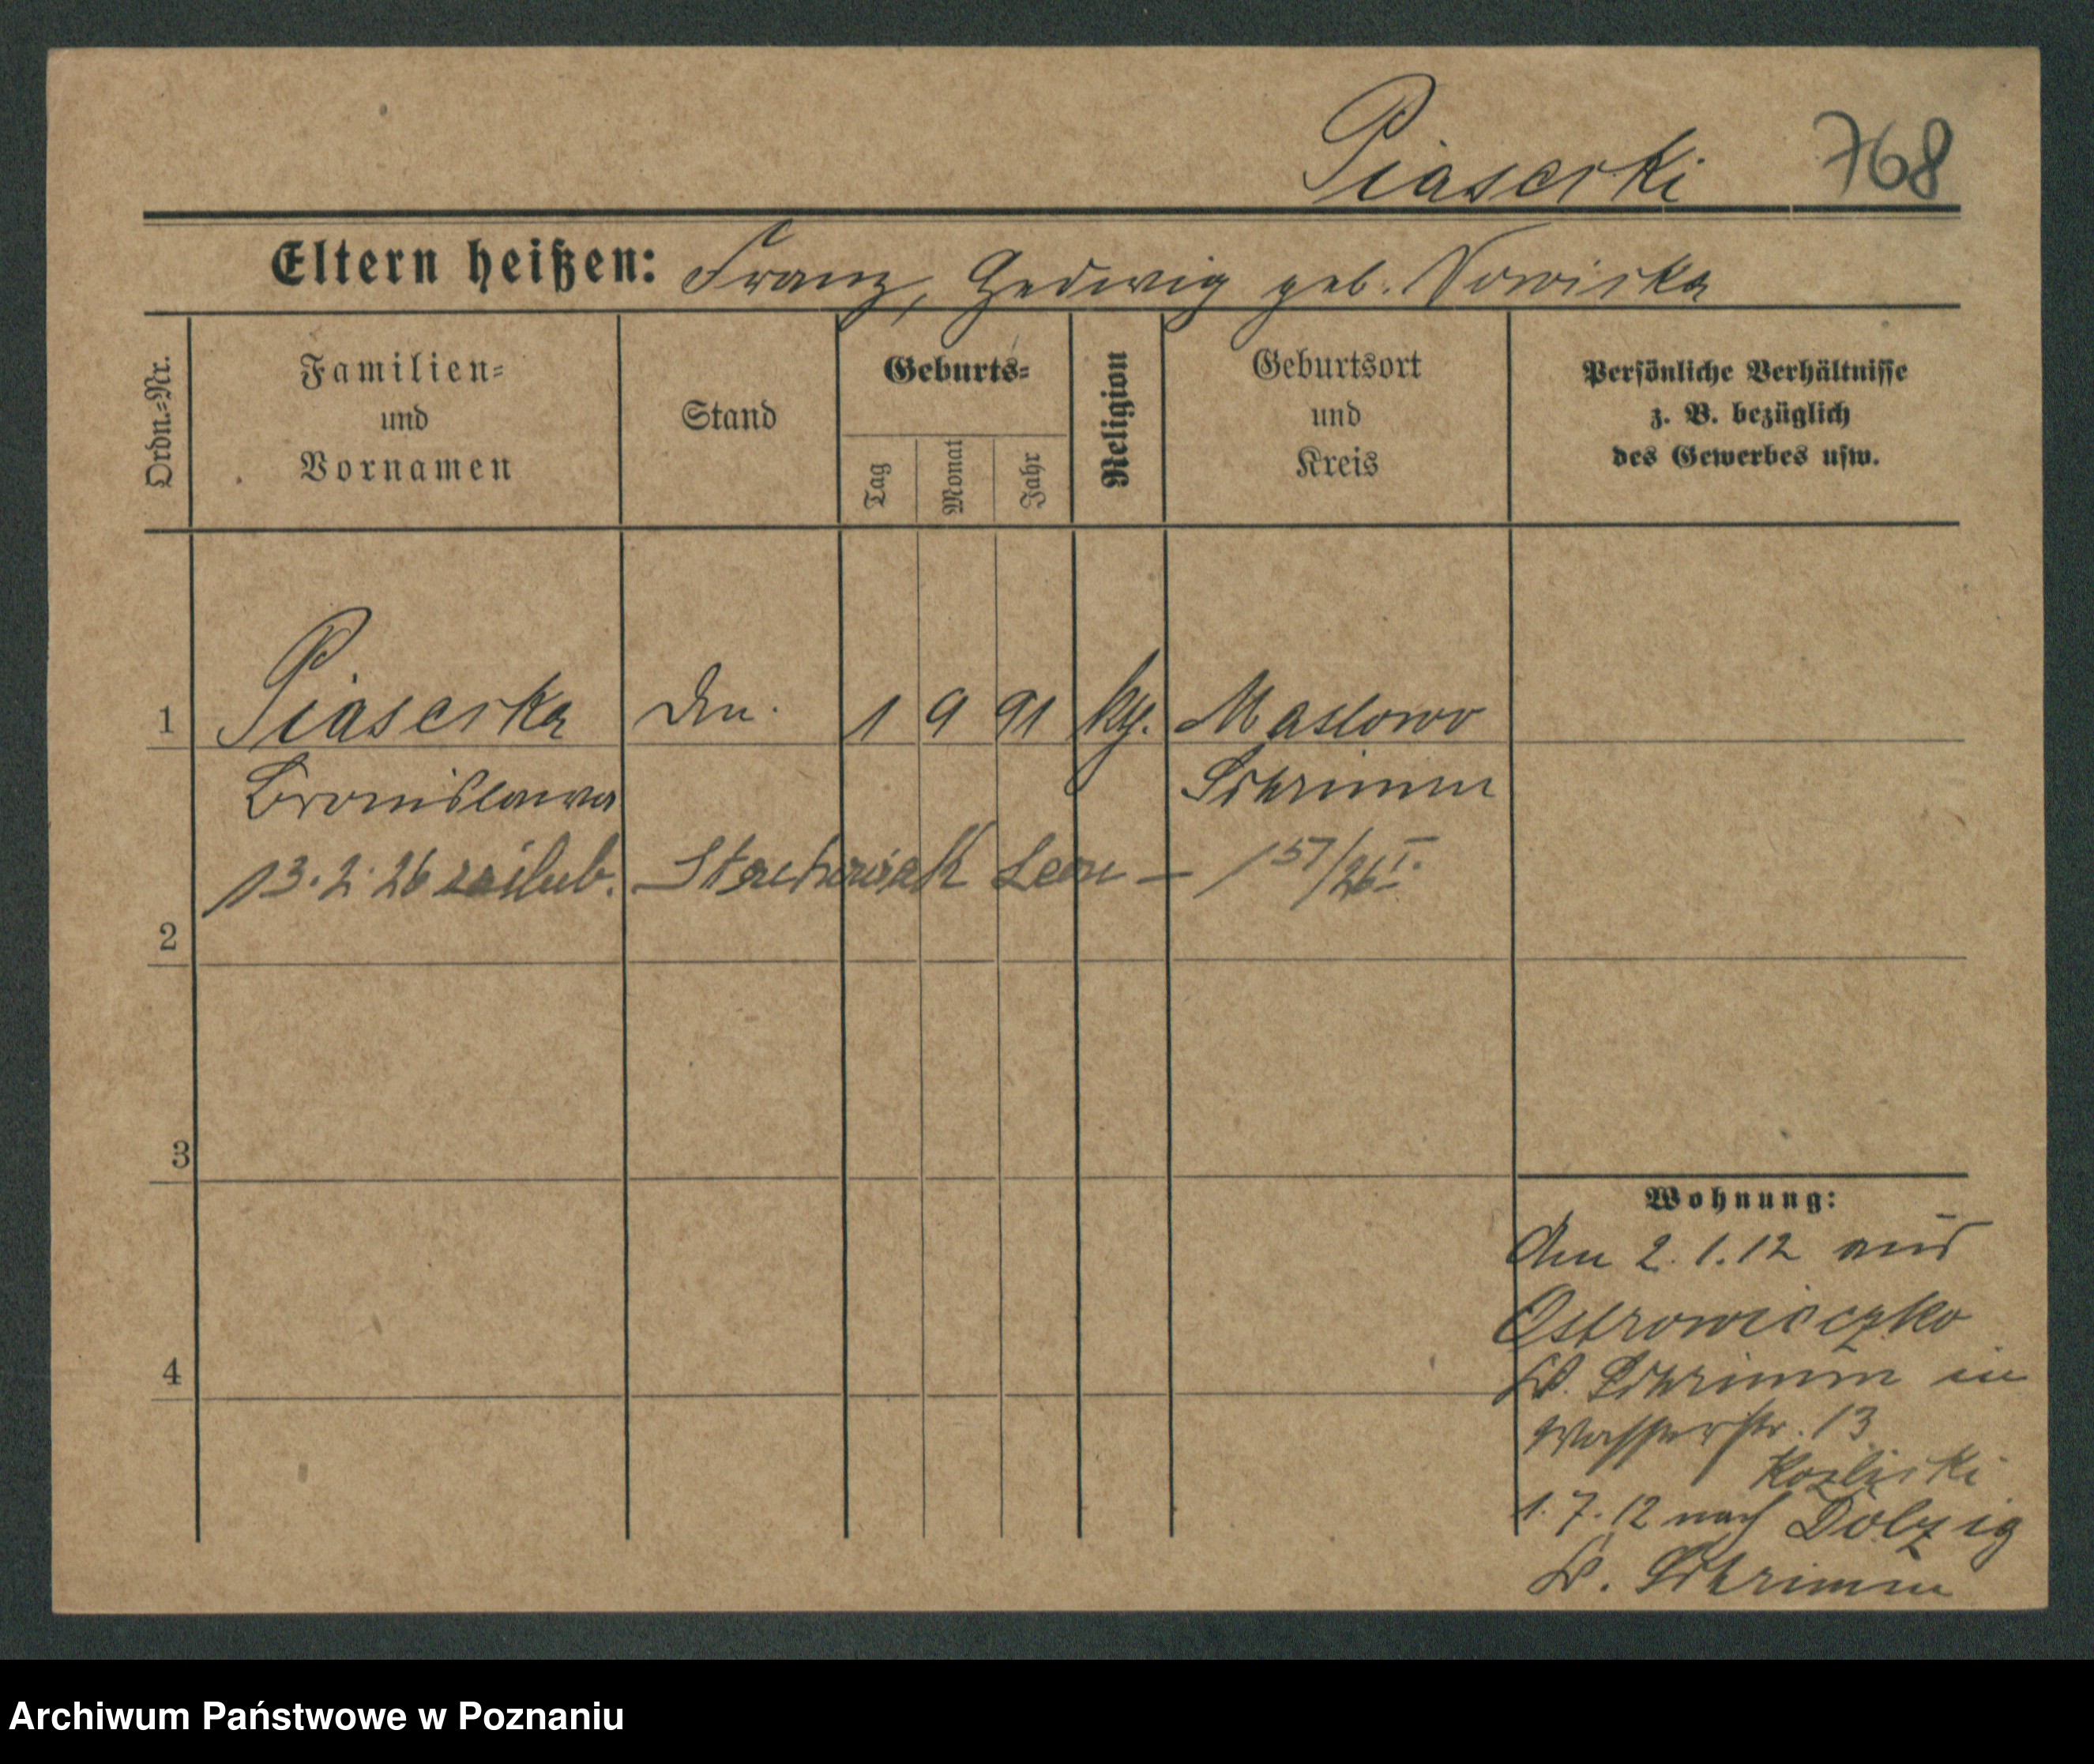 Piaserski 768
Eltern heißen: Franz, Hedwig geb. Nowiska
Ordn.=Nr.
Familien=
und
Vornamen
Stand
Geburts=
Tag
Monat
Jahr
Religion
Geburtsort
und
Kreis
Persönliche Verhältnisse
z. B. bezüglich
des Gewerbes usw.
1 Piaserska 1 9 91 Maslowo
Bronislawa Schrimm
13.2.26 zaślub. Stachowiak Leon – 157/26 I.
2
3
4
Wohnung:
2.1.12 aus
Ostrowieczko
Kr. Schrimm in
Wasserstr. 13
Kozliski
1.7.12 nach Dolzig
Kr. Schrimm
Archiwum Państwowe w Poznaniu